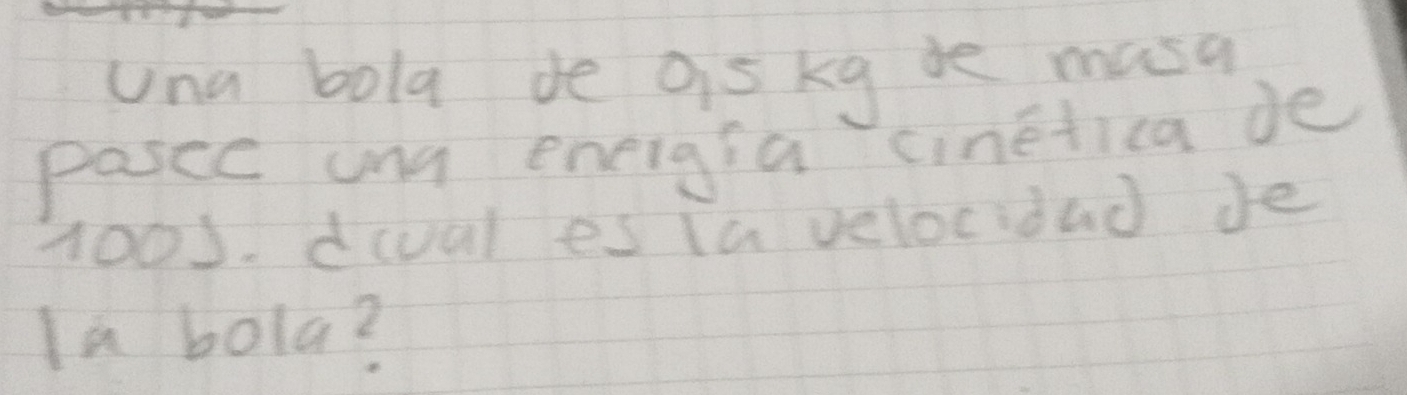 Una bola de 0,5 kg de masa
posee una energía cinética de
100J. ¿cual es la velocidad de
la bola?